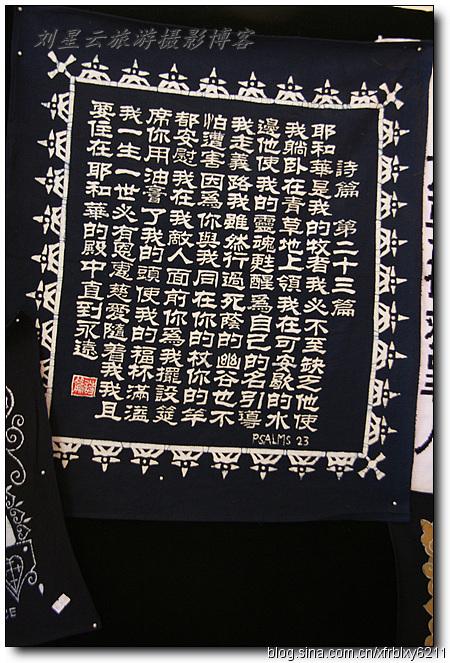 刘星云旅游摄影博客
詩篇 第二十三篇
耶和華是我的牧者我必不至缺乏他使
我躺卧在青草地上領我在可安歇的水
邊他使我的靈魂甦醒為自己的名引導
我走義路我雖然行過死蔭的幽谷也不
怕遭害因為你與我同在你的杖你的竿
都安慰我在我敵人面前你為我擺設筵
席你用油膏了我的頭使我的福杯滿溢
我一生一世必有恩惠慈愛隨着我我且
要住在耶和華的殿中直到永遠
PSALMS 23
blog.sina.com.cn/xfrblxy6211